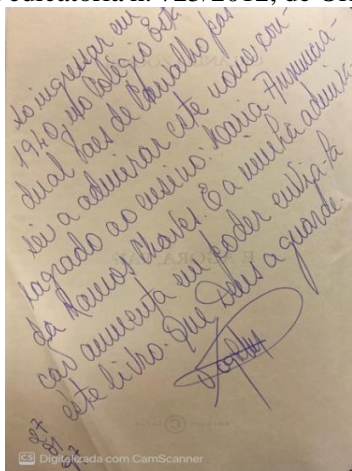 edicatória n. 723/2012, de
Ao ingressar em
1940, no Colégio Esta-
dual Paes de Carvalho pas-
sei a admirar este nome con-
sagrado ao ensino: Maria Annuncia-
da Ramos Chaves. E a minha admira-
ção aumenta em poder enviar-lhe
este livro. Que Deus a guarde.
CS Digitalizada com CamScanner